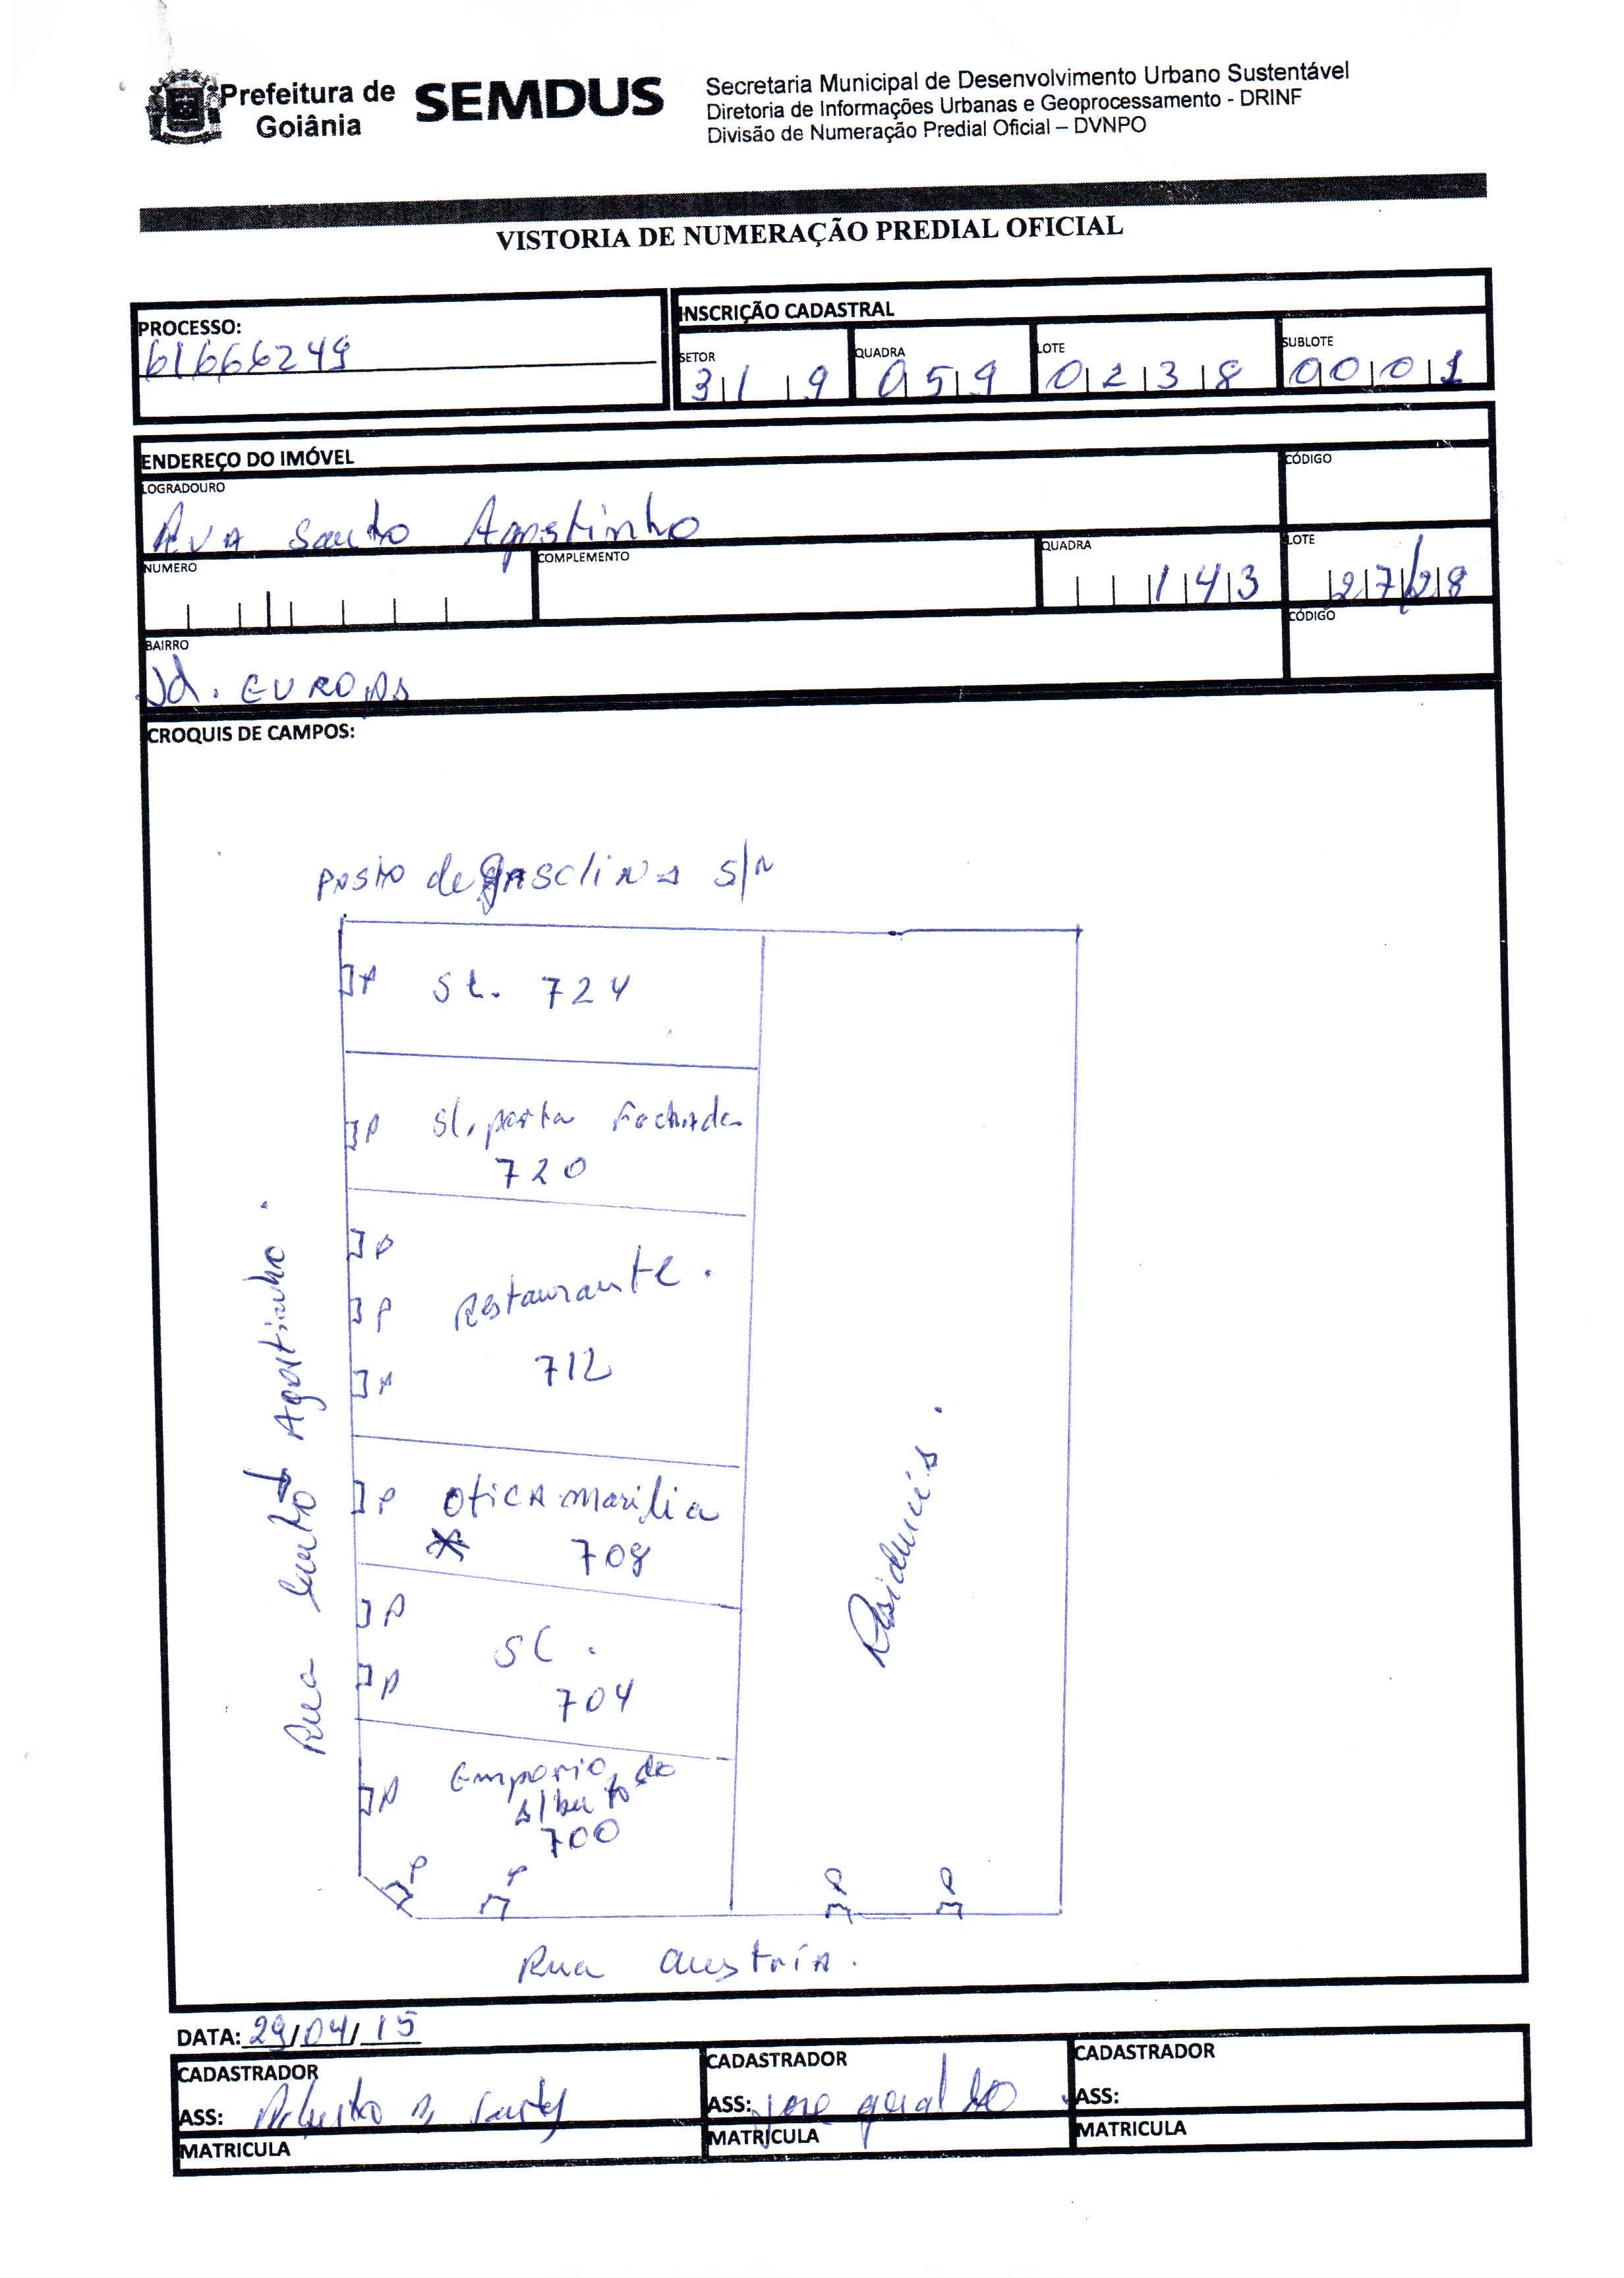 Prefeitura de
Goiânia
SEMDUS
Secretaria Municipal de Desenvolvimento Urbano Sustentável
Diretoria de Informações Urbanas e Geoprocessamento - DRINF
Divisão de Numeração Predial Oficial – DVNPO
VISTORIA DE NUMERAÇÃO PREDIAL OFICIAL
PROCESSO:
61666249
INSCRIÇÃO CADASTRAL
SETOR QUADRA LOTE SUBLOTE
319 059 0238 0001
ENDEREÇO DO IMÓVEL
LOGRADOURO CÓDIGO
Rua Santo Agostinho
NUMERO COMPLEMENTO QUADRA LOTE
143 27/28
BAIRRO CÓDIGO
Jd. EUROPA
CROQUIS DE CAMPOS:
Posto de gasolina S/N
P SL. 724
P SL. porta Fechada
720
P
P Restaurante.
712
P
P OticA Marilia
* 708
P
SL.
P 704
P Emporio do
Alberto
700
P P P P
Rua Santo Agostinho.
Rua Austria.
DATA: 29/04/15
CADASTRADOR CADASTRADOR CADASTRADOR
ASS: ASS: Jose geraldo ASS:
MATRICULA MATRICULA MATRICULA